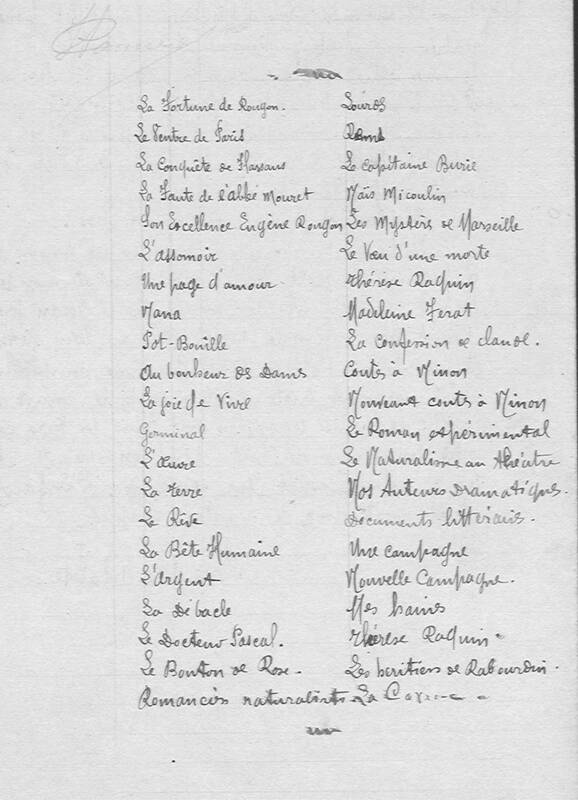 La Fortune de Rougon.
Le Ventre de Paris
La Conquête de Plassans
La Faute de l'abbé Mouret
Son Excellence Eugène Rougon
L'Assomoir
Une page d'amour
Nana
Pot-Bouille
Au bonheur des Dames
La joie de Vivre
Germinal
L'Œuvre
La Terre
Le Rêve
La Bête Humaine
L'Argent
La Débacle
Le Docteur Pascal.
Le Bouton de Rose.
Romanciers naturalists
Lourdes
Rome
Le capitaine Burle
Naïs Micoulin
Les Mystèrs de Marseille
Le Vœu d'une morte
Thérèse Raquin
Madeleine Ferat
La confession de claude.
Contes à Ninon
Nouveaux contes à Ninon
Le Roman expérimental
Le Naturalisme au théâtre
Nos Auteurs Dramatiques.
Documents littérairs.
Une campagne
Nouvelle Campagne.
Mes haines
Thérèse Raquin.
Les heritiers de Rabourdin.
La